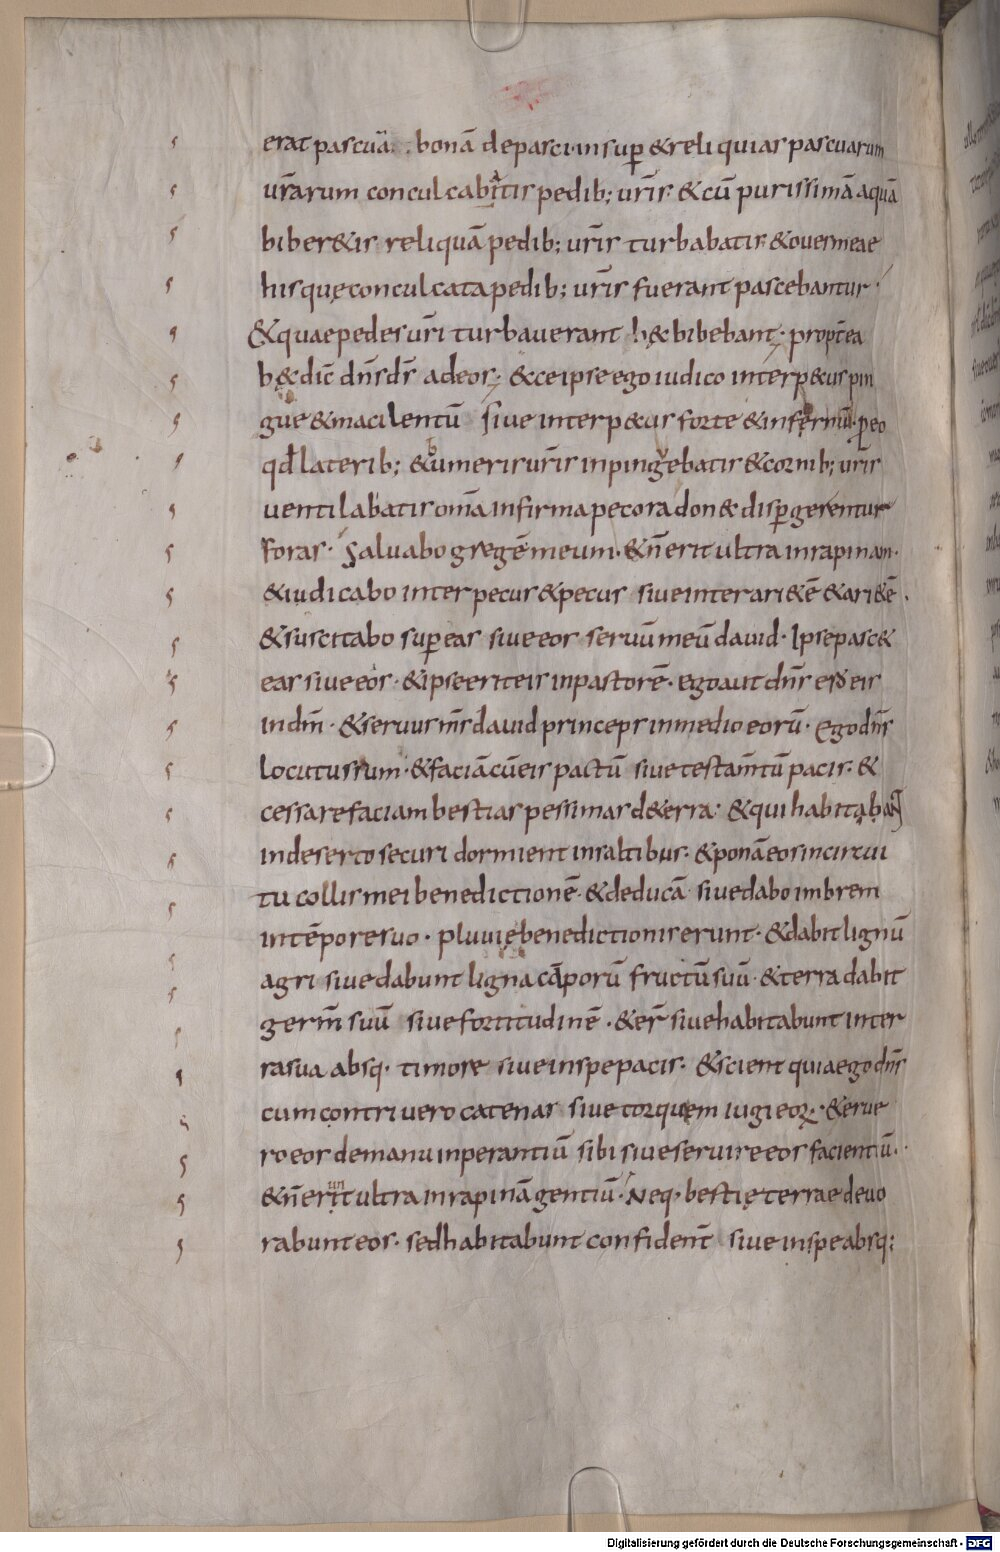 erat pascuā. bonā depasci insup̄ & reliquias pascuarum
ur̄arum conculcabatis pedib; ur̄is & cū purissimā aquā
biber&is reliquā pedib; ur̄is turbabatis & oves meae
his quę conculcata pedib; ur̄is fuerant pascebantur·
& quae pedes ur̄i turbaverant hęc bibebant· propt̄ea
hęc dic̄ dn̄s ds̄ ad eos; &cce ipse ego iudico inter p&us pin
gue & macilentū sive inter p&us forte & infirmū· p eo
qd̄ laterib; & umeris ur̄is inpingebatis & cornib; ur̄is
ventilabatis om̄a infirma pecora don& disp̄gerentur
foras· Salvabo gregē meum· & n̄ erit ultra in rapinam·
& iudicabo inter pecus & pecus sive inter ari&ē & ari&ē·
& suscitabo sup̄ eas sive eos servū meū david· Ipse pasc&
eas sive eos· & ipse erit eis in pastorē· ego aut dn̄s ero eis
in dm̄· & servus ms̄ david princeps in medio eorū· Ego dn̄s
locutus sum· & faciā cū eis pactū sive testam̄tū pacis· &
cessare faciam bestias pessimas d& erra· & qui habitabant
in deserto securi dormient in saltibus· & ponā eos in circui
tu collis mei benedictionē· & deducā sive dabo imbrem
in tēpore suo· pluvię benedictionis erunt· & dabit lignū
agri sive dabunt ligna cāporū fructū suū· & terra dabit
germ̄ suū sive fortitudinē· & er̄ sive habitabunt in ter
ra sua absq· timore sive in spe pacis· & scient quia ego dn̄s
cum contrivero catenas sive torquem iugi eoꝝ· & erue
ro eos de manu inperantiū sibi sive servire eos facientiū·
& n̄ erit ultra in rapinā gentiū· Neq· bestię terrae devo
rabunt eos· sed habitabunt confident̄ sive in spe absq;
Digitalisierung gefördert durch die Deutsche Forschungsgemeinschaft - DFG